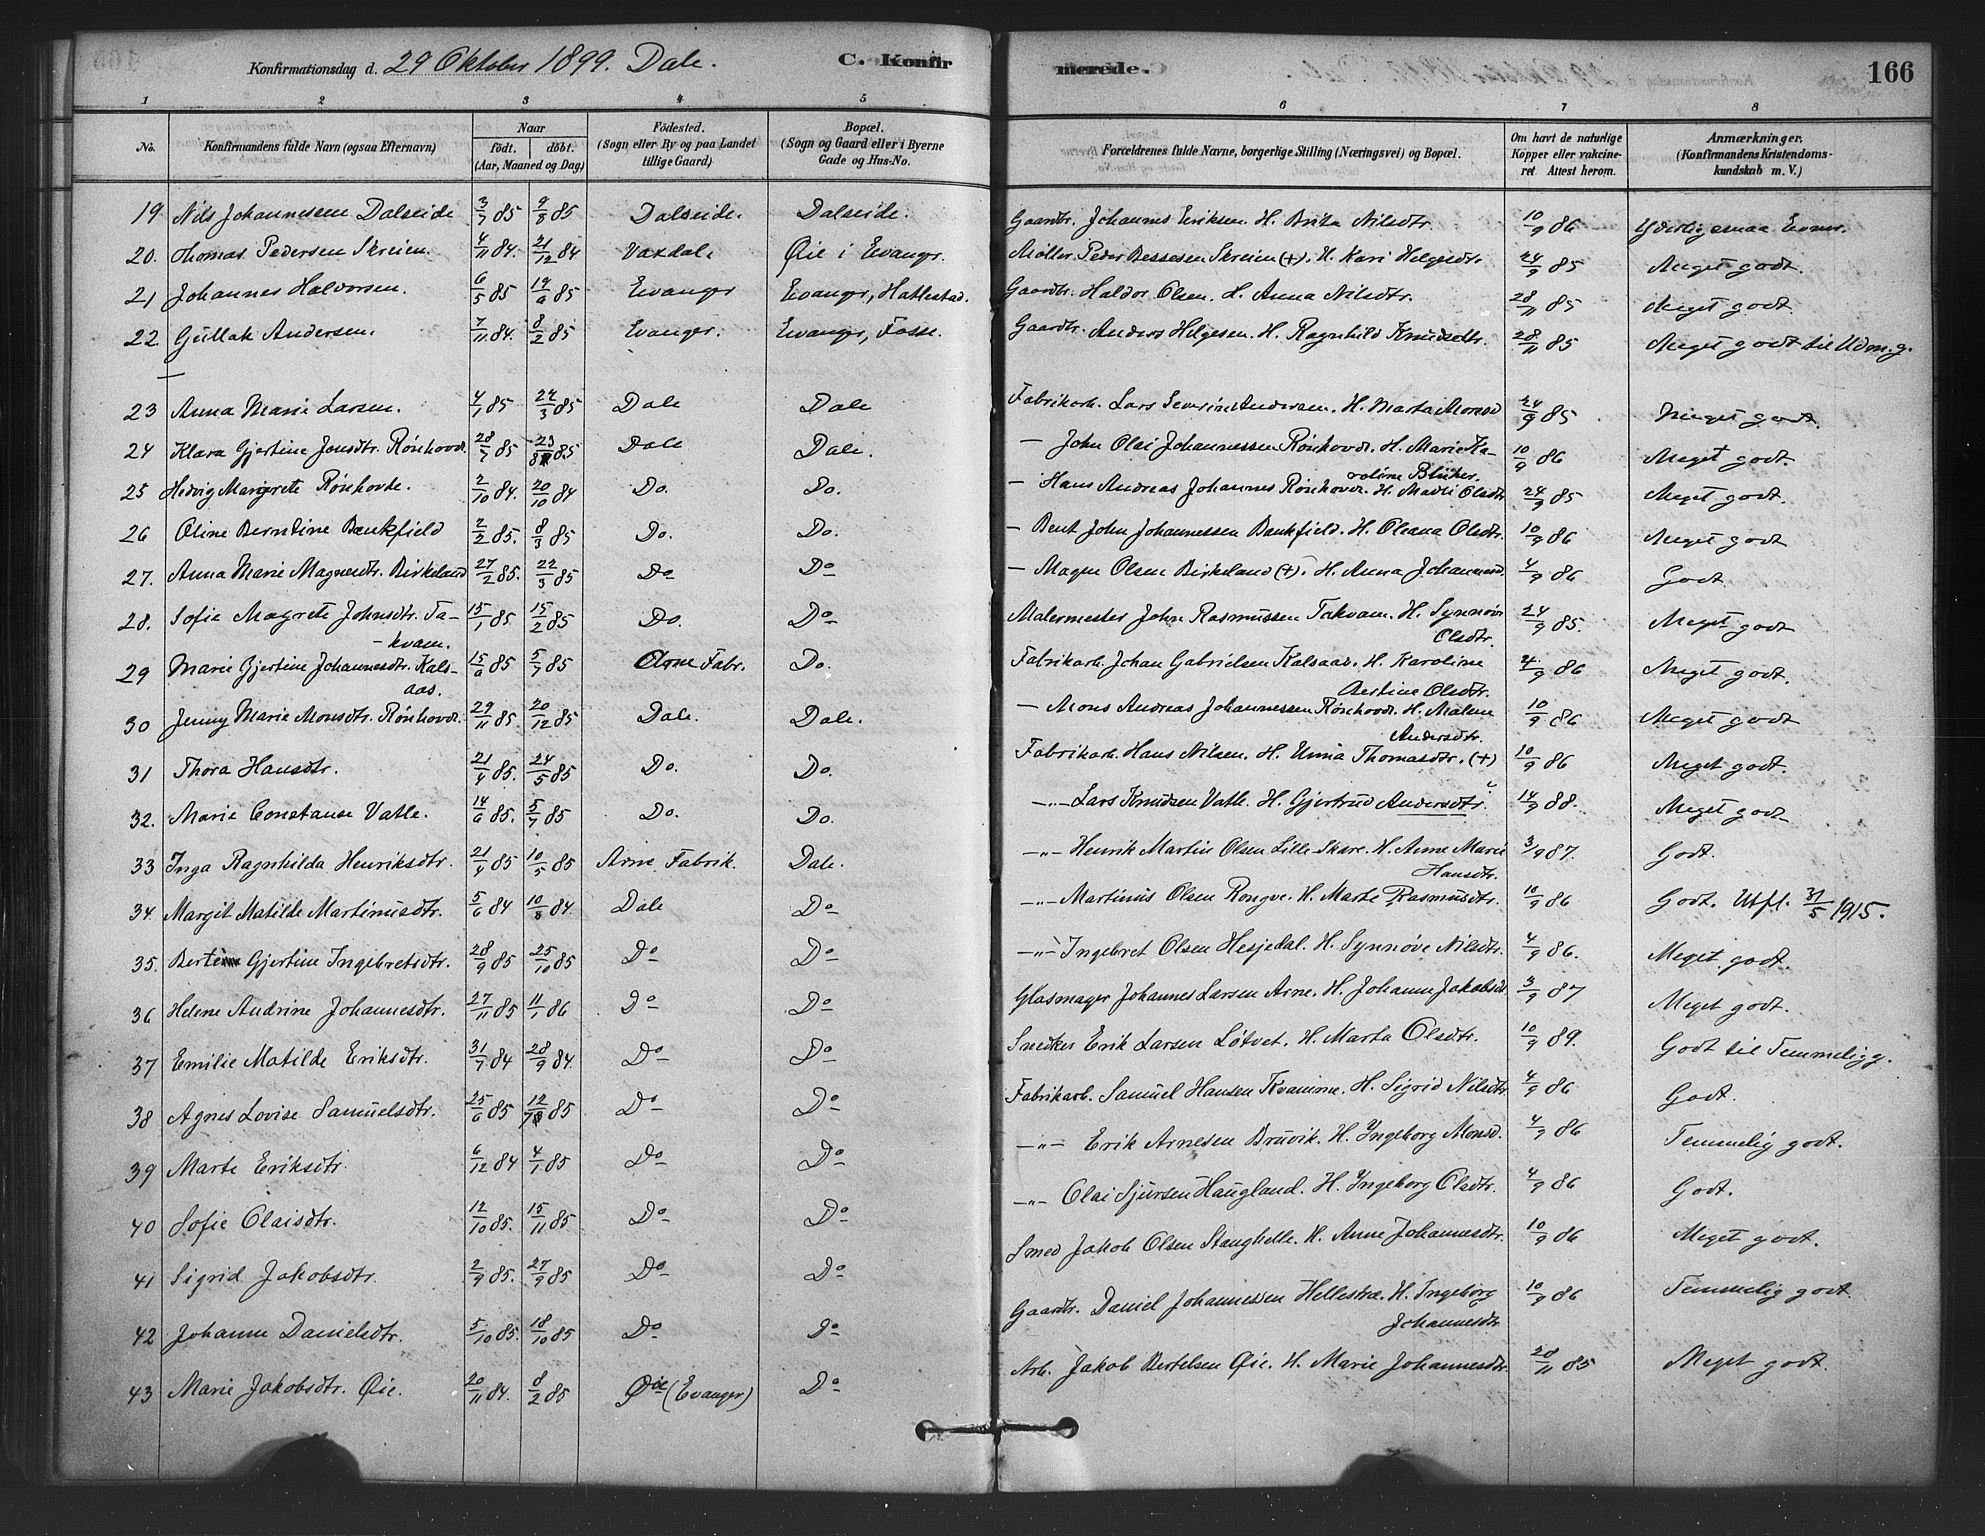 Konfirmationsdag d. 29 Oktober 1899. Dale. C. Konfirmerede. 166
1 2 3 4 5 6 7 8
No. Konfirmandens fulde Navn (ogsaa Efternavn) Naar födt. döbt. (Aar, Maaned og Dag) Födested. (Sogn eller By og paa Landet tillige Gaard) Bopæl. (Sogn og Gaard eller i Byerne Gade og Hus-No. Forældrenes fulde Navne, borgerlige Stilling (Næringsvei) og Bopæl. Om havt de naturlige Köpper eller vakcineret. Attest herom. Anmærkninger. (Konfirmandens Kristendomskundskab m. V.)
19 Nils Johannesen Dalseide 3/7 85 9/8 85 Dalseide. Dalseide. Gaardbr. Johannes Eriksen. H. Brita Nilsdtr. 10/9 86
20. Thomas Pedersen Skreien. 4/11 84. 21/12 84 Vaxdal. Øie i Evanger. Møller Peder Bessesen Skreien (+). H. Kari Helgesdtr. 24/9 85 Meget godt.
21 Johannes Halvorsen. 6/5 85 19/6 85 Evanger Evanger, Hatlestad. Gaardbr. Haldor Olsen. H. Anna Nilsdtr. 28/11 85 Meget godt
22. Gullak Andersen. 7/11 84. 8/2 85 Evanger. Evanger, Fosse. Gaardbr. Anders Helgesen. H. Ragnhild Knudsdtr. 28/11 85 Meget godt til Udm. g.
—
23 Anna Marie Larsen. 4/1 85 22/3 85 Dale Dale Fabrikarb. Lars Severin Andersen. H. Marta Monsd 24/9 85 Meget godt.
24 Klara Gjertine Jonsdtr. Rönhovd. 28/7 85 23/8 85 Dale Dale. — John Olai Johannessen Rönhovd. H. Marie Ka-
roline
25 Hedvig Margrete Rönhovde. 2/10 84. 20/10 84 Do. Do. — Hans Andreas Johannes Rönhovd. H. Madli Olsdtr 24/9 85 Meget godt.
26 Oline Berntine Bankfield 2/2 85. 8/3 85 Do. Do. — Bent John Johannessen Bankfield. H. Oleana Olsdtr. 10/9 86 Meget godt
27. Anna Marie Magnesdtr. Birkeland 27/2 85. 22/3 85 Do Do — Magne Olsen Birkeland (+). H. Anna Johannesd. 4/9 86 Godt
28. Sofie Magrete Johnsdtr. Ta- 15/1 85 15/2 85 Do. Do Malermester John Rasmussen Takvam. H. Synnøve 24/9 85. Meget godt
-kvam. Olsdtr.
29 Marie Gjertine Johannesdtr. Kals- 15/6 85 5/7 85 Arne Fabr. Do. Fabrikarb. Johan Gabrielsen Kalsaas. H. Karoline 4/9 86 Meget godt.
aas. Olsdtr.
30 Jenny Marie Monsdtr. Rönhovd. 29/11 85. 20/12 85 Dale. Dale. — Mons Andreas Johannessen Rönhovd. H. Malene 10/9 86 Meget godt
Andersdtr.
31 Thora Hansdtr. 21/4 85. 24/5 85 Do. Do. Fabrikarb. Hans Nilsen. H. Unna Thomasdtr. (+) 10/9 86 Meget godt.
32. Marie Constanse Vatle. 14/6 85. 5/7 85 Do. Do. —"— Lars Knudsen Vatle. H. Gjertrud Andersdtr. 14/9 88. Meget godt
33 Inga Ragnhilda Henriksdtr. 21/4 85 10/5 85 Arne Fabrik. Dale. —"— Henrik Martin Olsen Lille-Skare. H. Anne Marie 3/9 87. Godt.
Hansdtr.
34. Margit Matilde Martinusdtr. 5/6 84 10/8 84. Dale Do —"— Martinus Olsen Rongve. H. Marte Rasmusdtr. 10/9 86 Godt. Utfl. 31/5 1915.
35. Gjertine Ingebretsdtr. 28/9 85 25/10 85 Do Do —"— Ingebret Olsen Hesjedal. H. Synnøve Nilsdtr. 4/9 86. Meget godt.
36 Helene Andrine Johannesdtr. 27/11 85 11/1 86 Do Do Glasmager Johannes Larsen Arne. H. Johanne Jakobsd 3/9 87 Meget godt.
37 Emilie Matilde Eriksdtr. 31/7 84 28/9 84. Do Do Snedker Erik Larsen Løtvet. H. Marta Olsdtr. 10/9 89. Godt til Temmelig g.
38 Agnes Lovise Samuelsdtr. 25/6 85 12/7 85 Do Do Fabrikarb. Samuel Hansen Kvamme. H. Sigrid Nilsdtr 4/9 86 Godt.
39 Marte Eriksdtr. 6/12 84 4/1 85 Do Do —"— Erik Arnesen Bruvik. H. Ingeborg Monsd. 4/9 86 Temmelig godt.
40 Sofie Olaisdtr. 12/10 85. 15/11 85 Do Do —"— Olai Sjursen Haugland. H. Ingeborg Olsdtr. 4/9 86 Godt.
41 Sigrid Jakobsdtr. 2/9 85. 27/9 85 Do Do Smed Jakob Olsen Stanghelle. H. Anne Johannesdtr. 10/9 86 Meget godt.
42 Johanne Danielsdtr. 5/10 85. 18/10 85 Do Do Gaardbr. Daniel Johannessen Hellestræ. H. Ingeborg 10/9 86 Temmelig godt.
Johannesdtr
43 Marie Jakobsdtr. Øie. 20/11 84. 8/2 85 Øie (Evanger) Do Arb. Jakob Bertelsen Øie. H. Marie Johannesdtr 28/11 85 Meget godt.